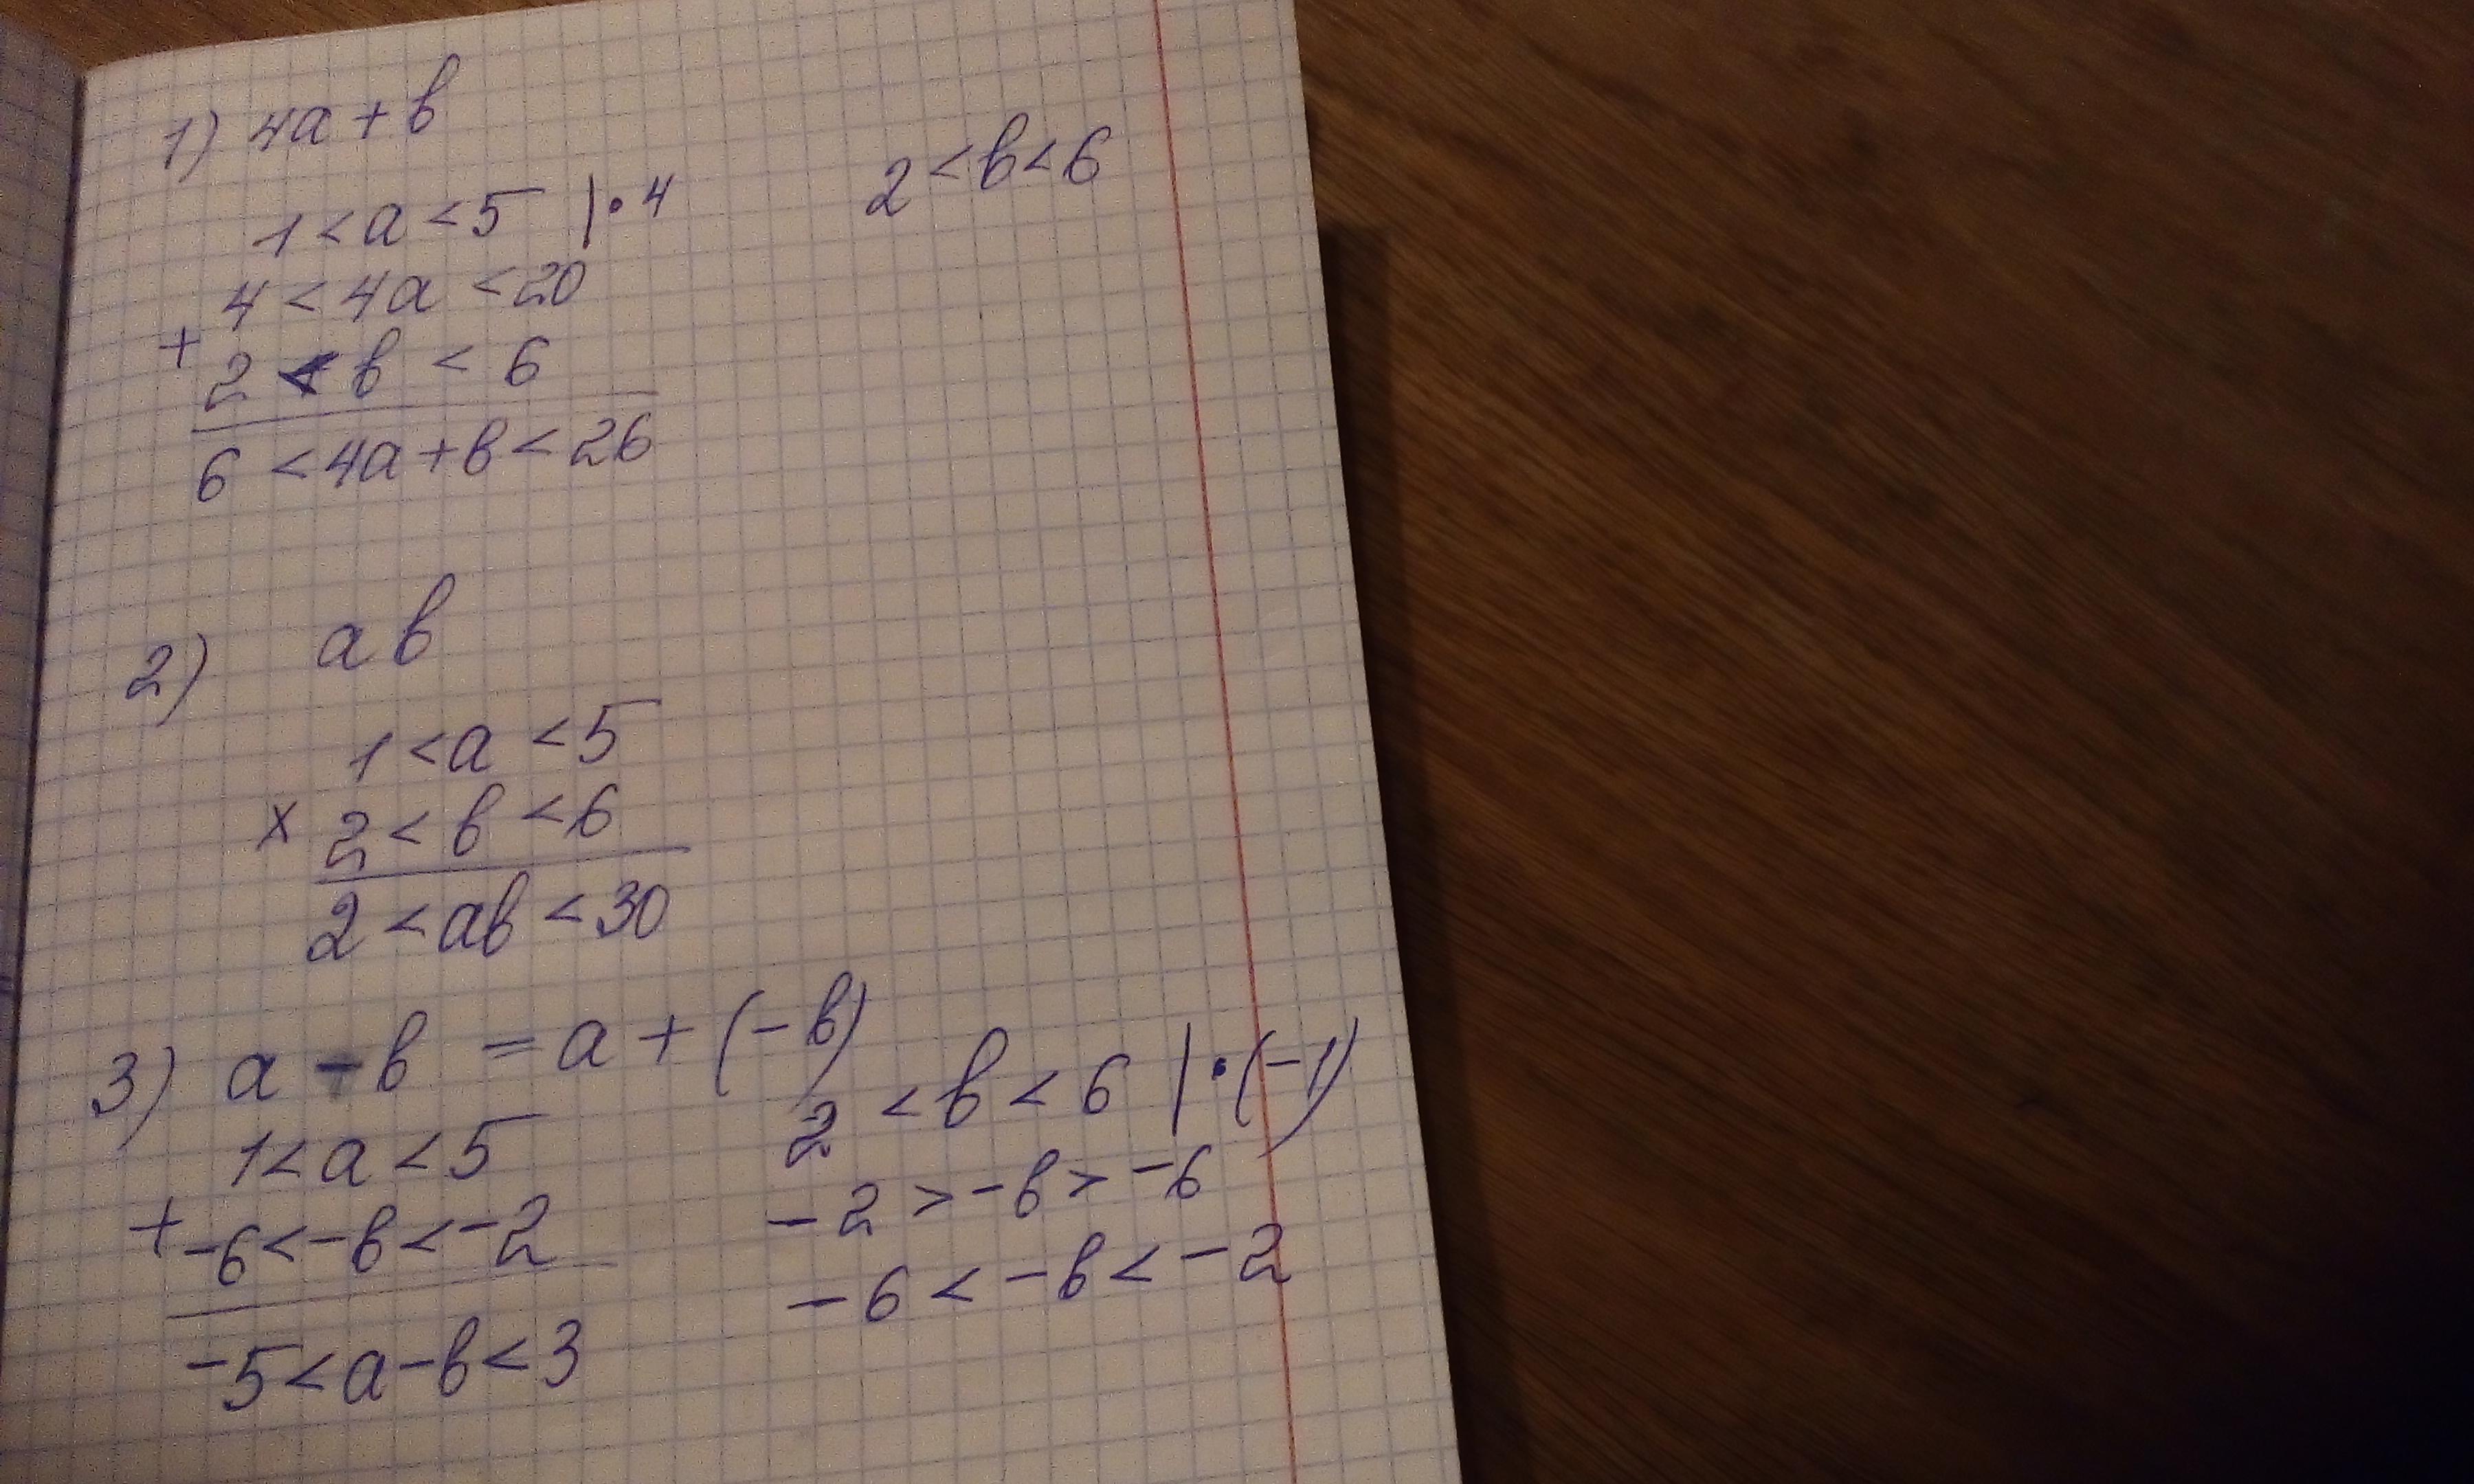 1) 4a + b
1 < a < 5 | • 4 2 < b < 6
4 < 4a < 20
+
2 < b < 6
6 < 4a + b < 26
2) ab
1 < a < 5
x 2 < b < 6
2 < ab < 30
3) a - b = a + (-b)
1 < a < 5 2 < b < 6 | • (-1)
+ -6 < -b < -2 -2 > -b > -6
-5 < a - b < 3 -6 < -b < -2